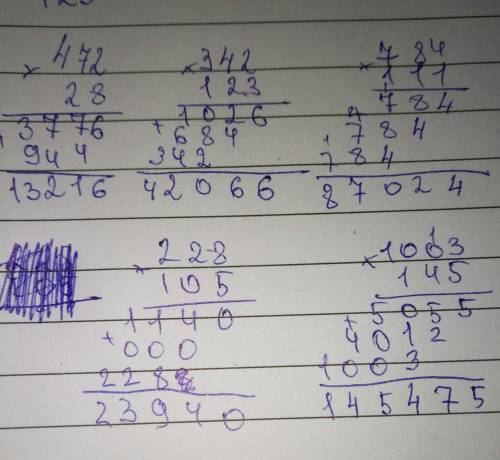 × 472
28
+ 3776
944
13216
× 342
123
1026
+ 684
342
42066
× 784
111
784
+ 784
784
87024
× 228
105
1140
+ 000
228
23940
× 1003
145
+ 5055
4012
1003
145475